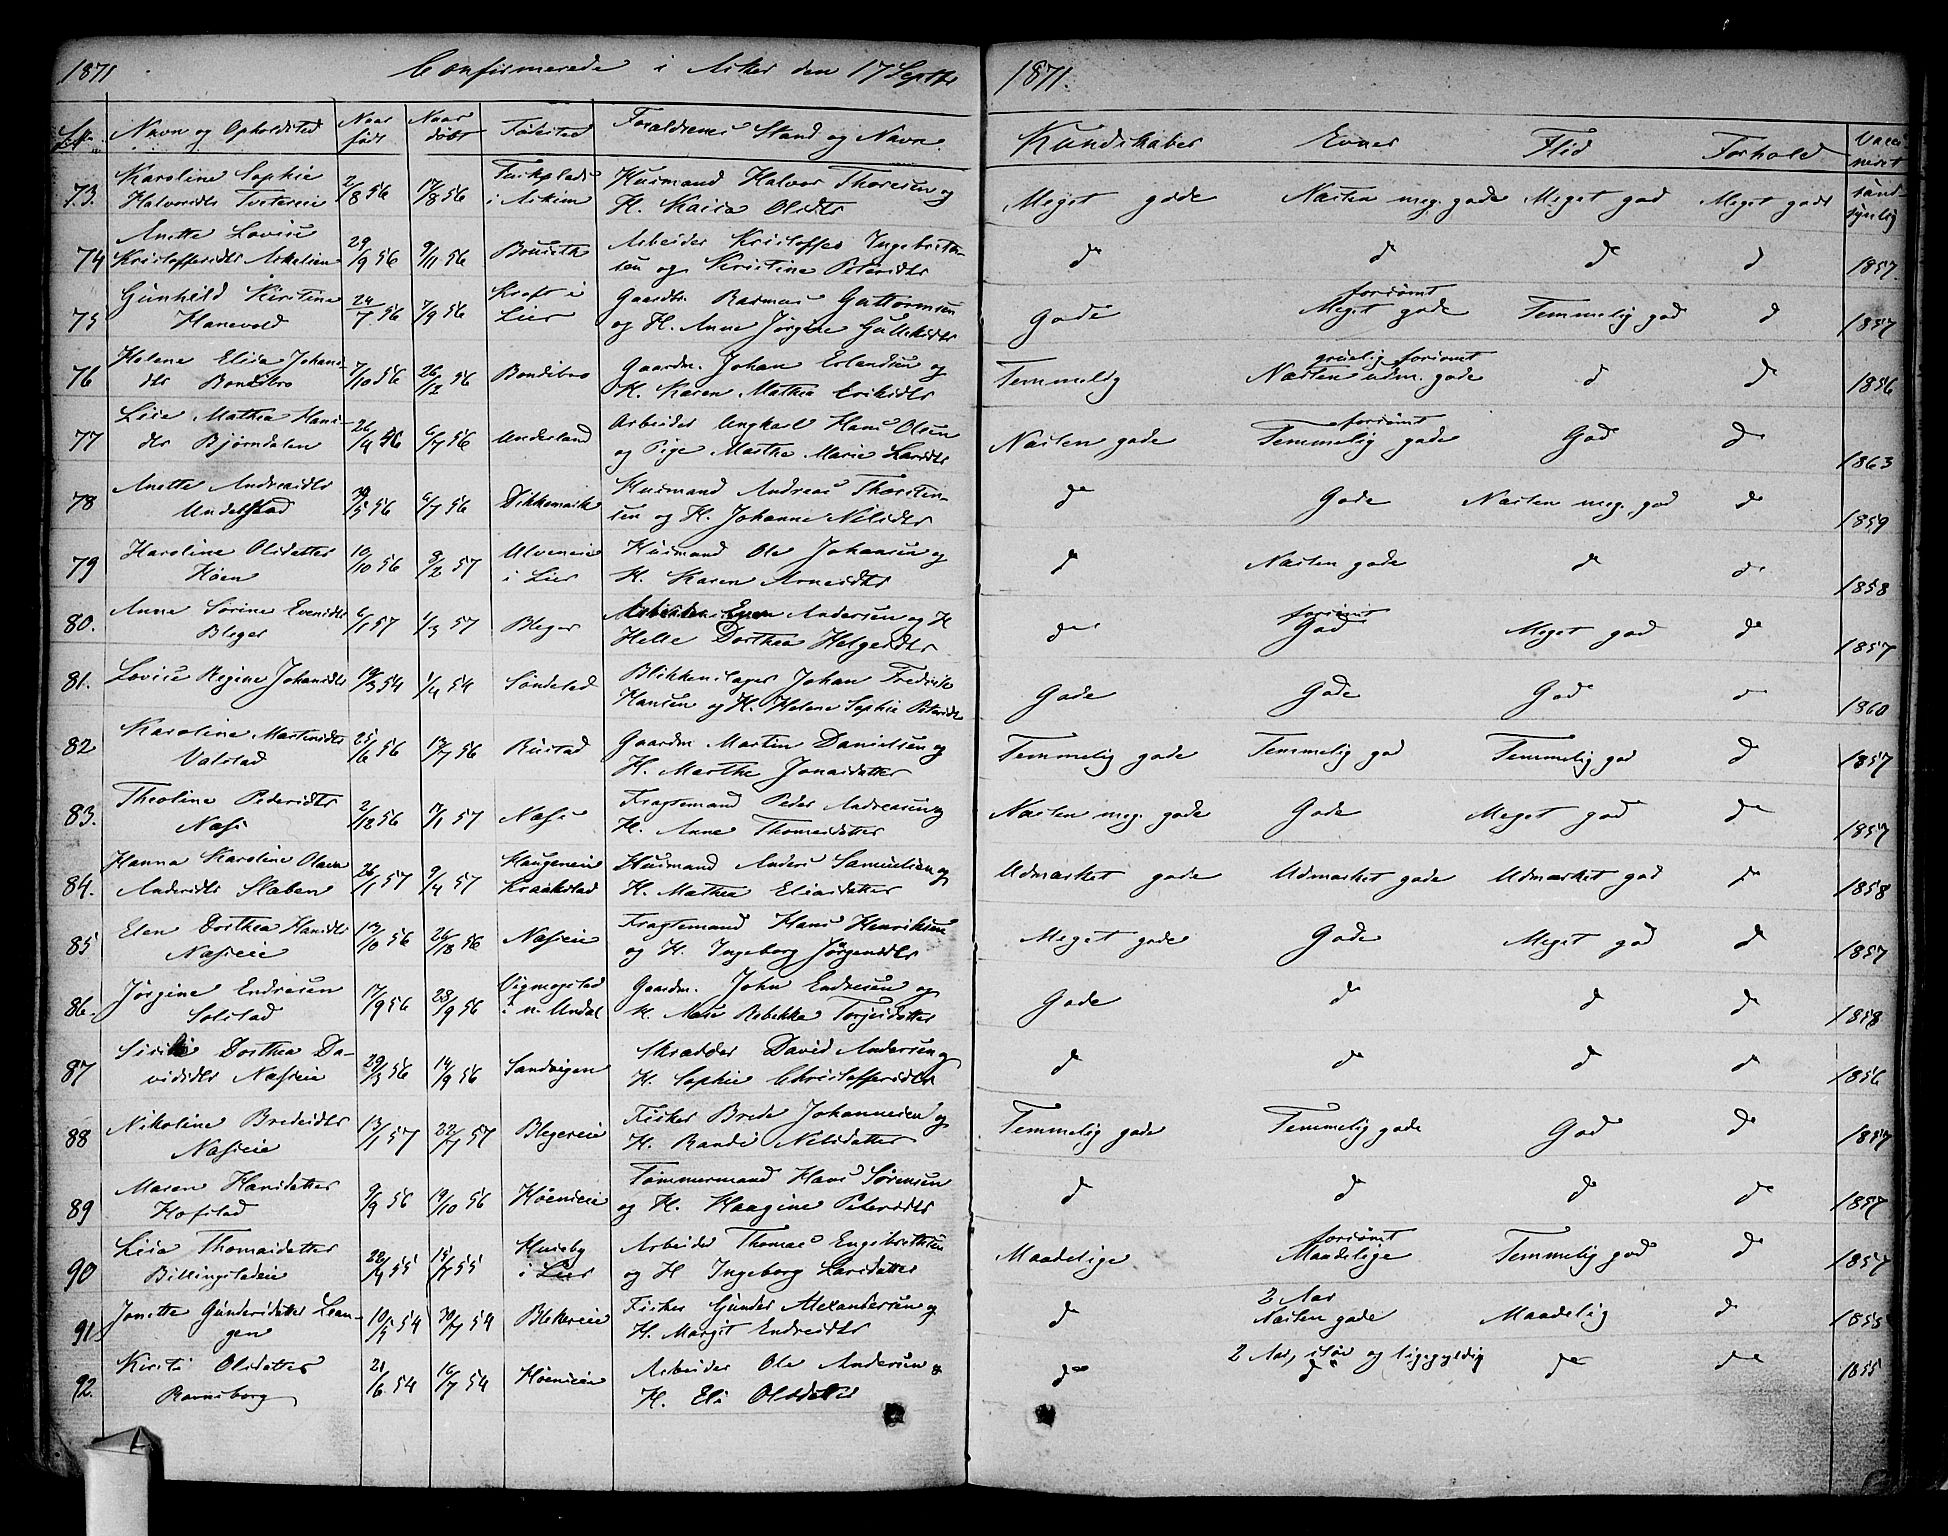 1871 Confirmerede i Asker den 17 Septbr 1871.
Navn og Opholdsted Naar født Naar døbt Fødested Forældrenes Stand og Navn. Kundskaber Evner Flid Forhold Vacci-
neret
73. Karoline Sophie 2/8 56 17/8 56 Husmand Halvor Thoresen og Meget gode Næsten meg. gode Meget god Meget godt sand-
Halvorsdtr Tvetereie i Askim H. Kaisa Olsdtr synlig
74 Anette Lovise 29/9 56 9/11 56 Arbeider Kristoffer Ingebrigt- d d d d 1857.
Kristoffersdtr sen og Kristine Petersdtr
75 Gunhild Kirstine 24/7 56 7/9 56 Kroft i Gaardbr. Rasmus Guttormsen Gode forsømt Temmelig god d 1857
Hanevold Lier og H. Anne Jørgine Gulliksdtr Meget gode
76 Helene Elise Johans- 7/10 56 26/12 56 Bondibro Gaardm. Johan Erlandsen og Temmelig gruelig forsømt d d 1856
dtr Bondibro H. Karen Mathea Eriksdtr Næsten udm. gode
77 Lise Mathea Hans- 26/4 56 6/7 56 Underland Arbeider Ungkarl Hans Olsen Næsten gode forsømt God d 1863
dtr Bjørndalen og Pige Marthe Marie Larsdtr Temmelig gode
78 Anette Andreasdtr 30/5 56 6/7 56 Dikkemark Husmand Andreas Thorsten- d Gode Næsten meg. god d 1859
Undelstad sen og H. Johanne Nilsdtr
79 Karoline Olsdatter 10/10 56 8/2 57 Ulveneie Husmand Ole Johansen og d Næsten gode d d 1858
Høen i Lier H. Karen Arnesdtr
80. Anne Sørine Evensdtr 6/1 57 1/3 57 Bleger Arbeider Even Andersen og H. d forsømt Meget god d 1857
Bleger Helle Dorthea Helgesdtr God
81. Lovise Regine Johansdtr 19/3 54 1/4 54 Søndstad Blikkenslager Johan Fredrik Gode Gode God d 1860
Hansen og H. Helene Sophie Petersdtr
82 Karoline Martinsdtr 25/6 56 13/7 56 Rustad Gaardm Martin Danielsen og Temmelig gode Temmelig god Temmelig god d 1857
Valstad H. Marthe Jonasdatter
83. Theoline Pedersdtr 2/12 56 17/1 57 Næss Fragtemand Peder Andreasen og Næsten meg. gode Gode Meget god d 1857
Næss H. Anne Thomesdatter
84. Hanna Karoline Olava 26/1 57 9/4 57 Haugereie Husmand Anders Samuelsen og Udmærket gode Udmærket gode Udmærket god d 1858
Andersdtr Slæben Kraakstad H. Mathea Eliasdatter
85 Elen Dorthea Hansdtr 13/10 56 26/12 56 Næseie Fragtemand Hans Henriksen Meget gode Gode Meget god d 1857
Næseie og H. Ingeborg Jørgensdtr
86. Jørgine Endresen 17/9 56 23/9 56 Vigmogstad Gaardm. John Endresen og Gode d d d 1858
Solstad i n. Undal H. Aase Rebekka Torjesdatter
87 Dorthea Da- 29/3 56 14/9 56 Sandvigen Skrædder David Andersen og d d d d 1856
vidsdtr Næseie H. Sophie Christoffersdtr
88 Nikoline Bredesdtr 13/1 57 22/7 57 Blegereie Fisker Brede Johannesen og Temmelig gode Temmelig gode God d 1857
Næseie H. Randi Nilsdatter
89 Maren Hansdatter 9/9 56 19/10 56 Høenseie Tømmermand Hans Sørensen d d d d 1857
Hofstad og H. Haagine Petersdtr
90 Lisa Thomasdatter 22/4 55 15/7 55 Huseby Arbeider Thomas Engebrethsen Maadelige forsømt Temmelig god d 1857
Billingstadeie i Lier og H Ingeborg Larsdatter Maadelige
91 Jonette Gundersdatter Lean- 10/5 54 30/7 54 Blekereie Fisker Gunder Alexandersen og d 2 Aar Maadelig d 1855
gen H. Margit Endresdtr Næsten gode
92. Kirsti Olsdatter 21/6 54 16/7 54 Høenseie Arbeider Ole Andersen & d 2 Aar, sløv og ligegyldig d d 1855
Ravnsborg H. Eli Olsdatter d